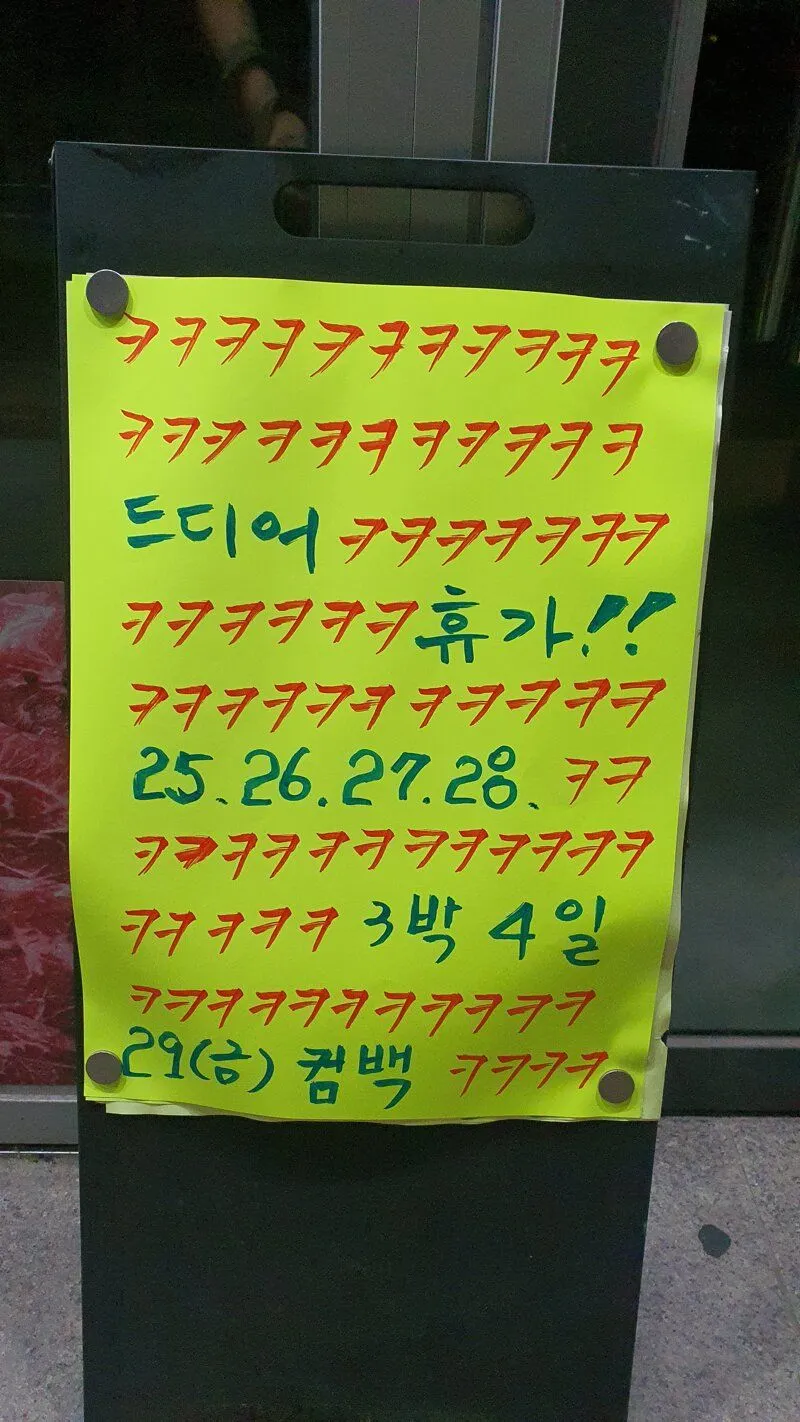 ㅋㅋㅋㅋㅋㅋㅋㅋㅋㅋㅋ
ㅋㅋㅋㅋㅋㅋㅋㅋㅋㅋㅋ
드디어 ㅋㅋㅋㅋㅋㅋㅋ
ㅋㅋㅋㅋㅋㅋ휴가!!
ㅋㅋㅋㅋㅋㅋ ㅋㅋㅋㅋㅋ
25.26.27.28. ㅋㅋ
ㅋㅋㅋㅋㅋㅋㅋㅋㅋㅋㅋㅋ
ㅋㅋㅋㅋㅋ 3박 4일
ㅋㅋㅋㅋㅋㅋㅋㅋㅋㅋㅋ
29(금) 컴백 ㅋㅋㅋㅋ